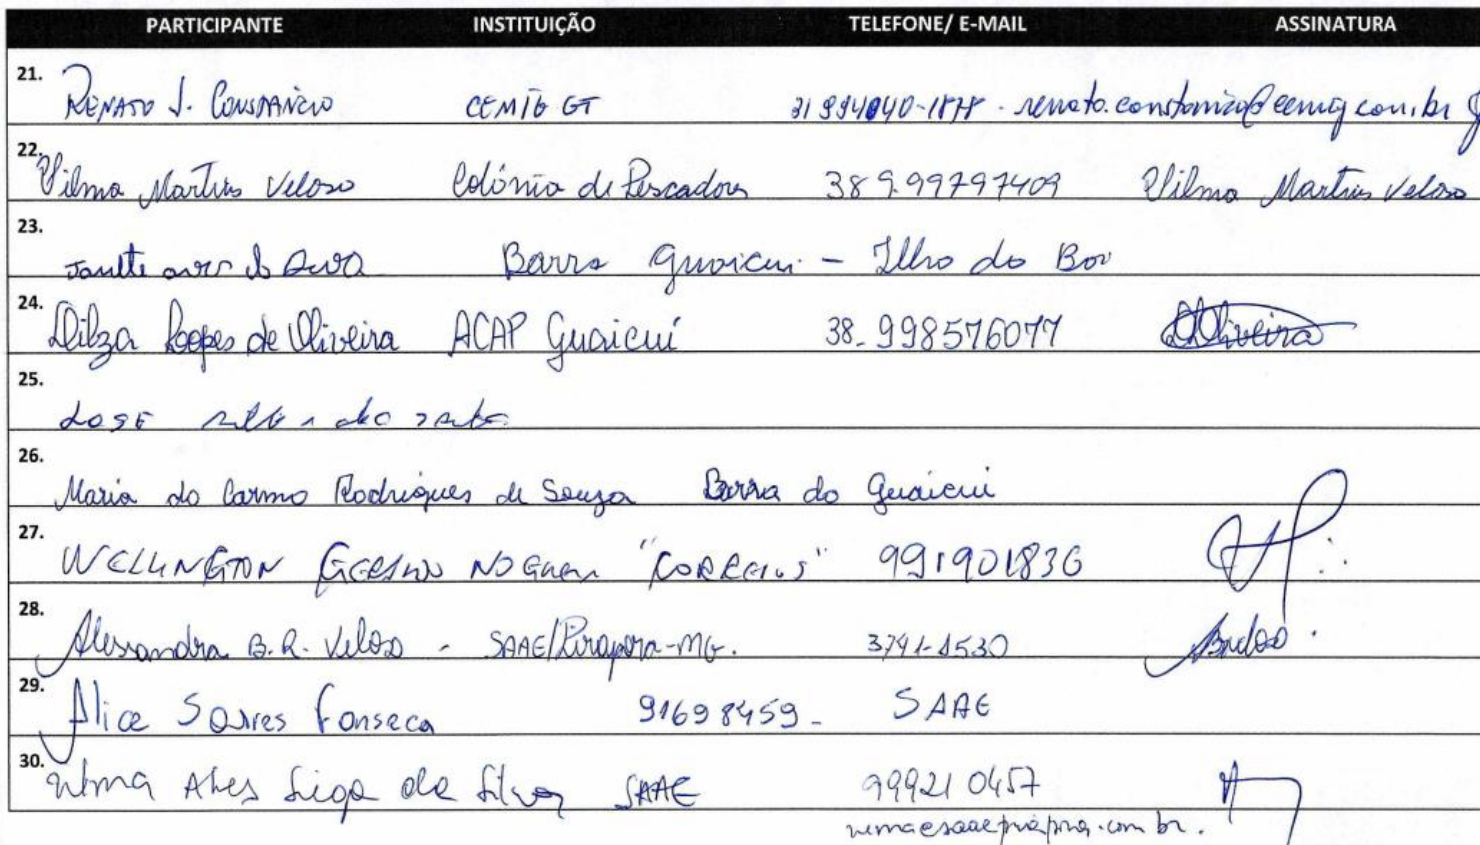 PARTICIPANTE INSTITUIÇÃO TELEFONE/ E-MAIL ASSINATURA
21. RENATO J. CONSTÂNCIO CEMIG GT
22. Vilma Martins Veloso Colônia de Pescadores 38 9.99797409 Vilma Martins Veloso
23. Barra Guaicui - Ilha do Boi
24. Dilza Lopes de Oliveira ACAP Guaicuí 38-998576077 Oliveira
25. JOSE
26. Maria do Carmo Rodrigues de Souza Barra do Guaicui
27. WELLINGTON "CORREIOS" 991901836
28. Alessandra B.R. Veloso - SAAE/Pirapora-MG. 3741-1530
29. Alice Soares Fonseca 91698459- SAAE
30. Alves da Silva SAAE 999210457